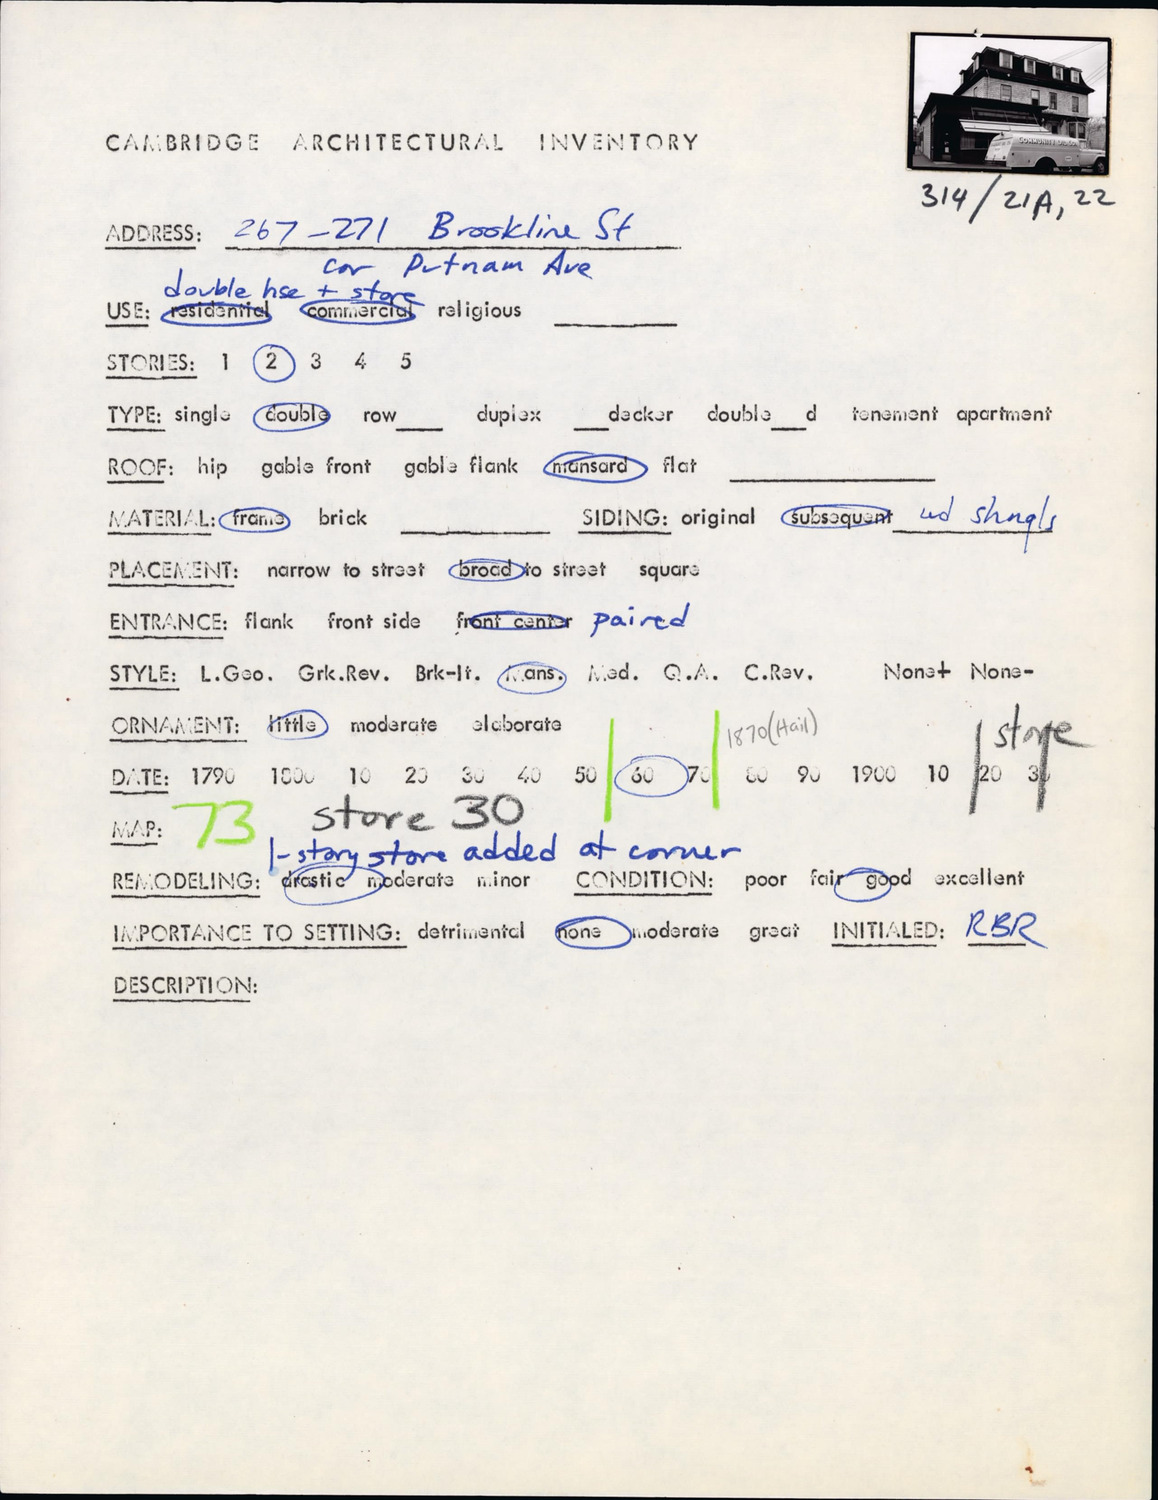 COMMUNITY OIL CO.
314/21A, 22
CAMBRIDGE ARCHITECTURAL INVENTORY
ADDRESS: 267-271 Brookline St
cor Putnam Ave
double hse + store
USE: residential commercial religious
STORIES: 1 2 3 4 5
TYPE: single double row___ duplex ___decker double___d tenement apartment
ROOF: hip gable front gable flank mansard flat
MATERIAL: frame brick SIDING: original subsequent wd shngls
PLACEMENT: narrow to street broad to street square
ENTRANCE: flank front side front center paired
STYLE: L.Geo. Grk.Rev. Brk-It. Mans. Med. Q.A. C.Rev. None+ None-
ORNAMENT: little moderate elaborate 1870 (Hail) store
DATE: 1790 1800 10 20 30 40 50 60 70 80 90 1900 10 20 30
MAP: 73 store 30
1-story store added at corner
REMODELING: drastic moderate minor CONDITION: poor fair good excellent
IMPORTANCE TO SETTING: detrimental none moderate great INITIALED: RBR
DESCRIPTION: